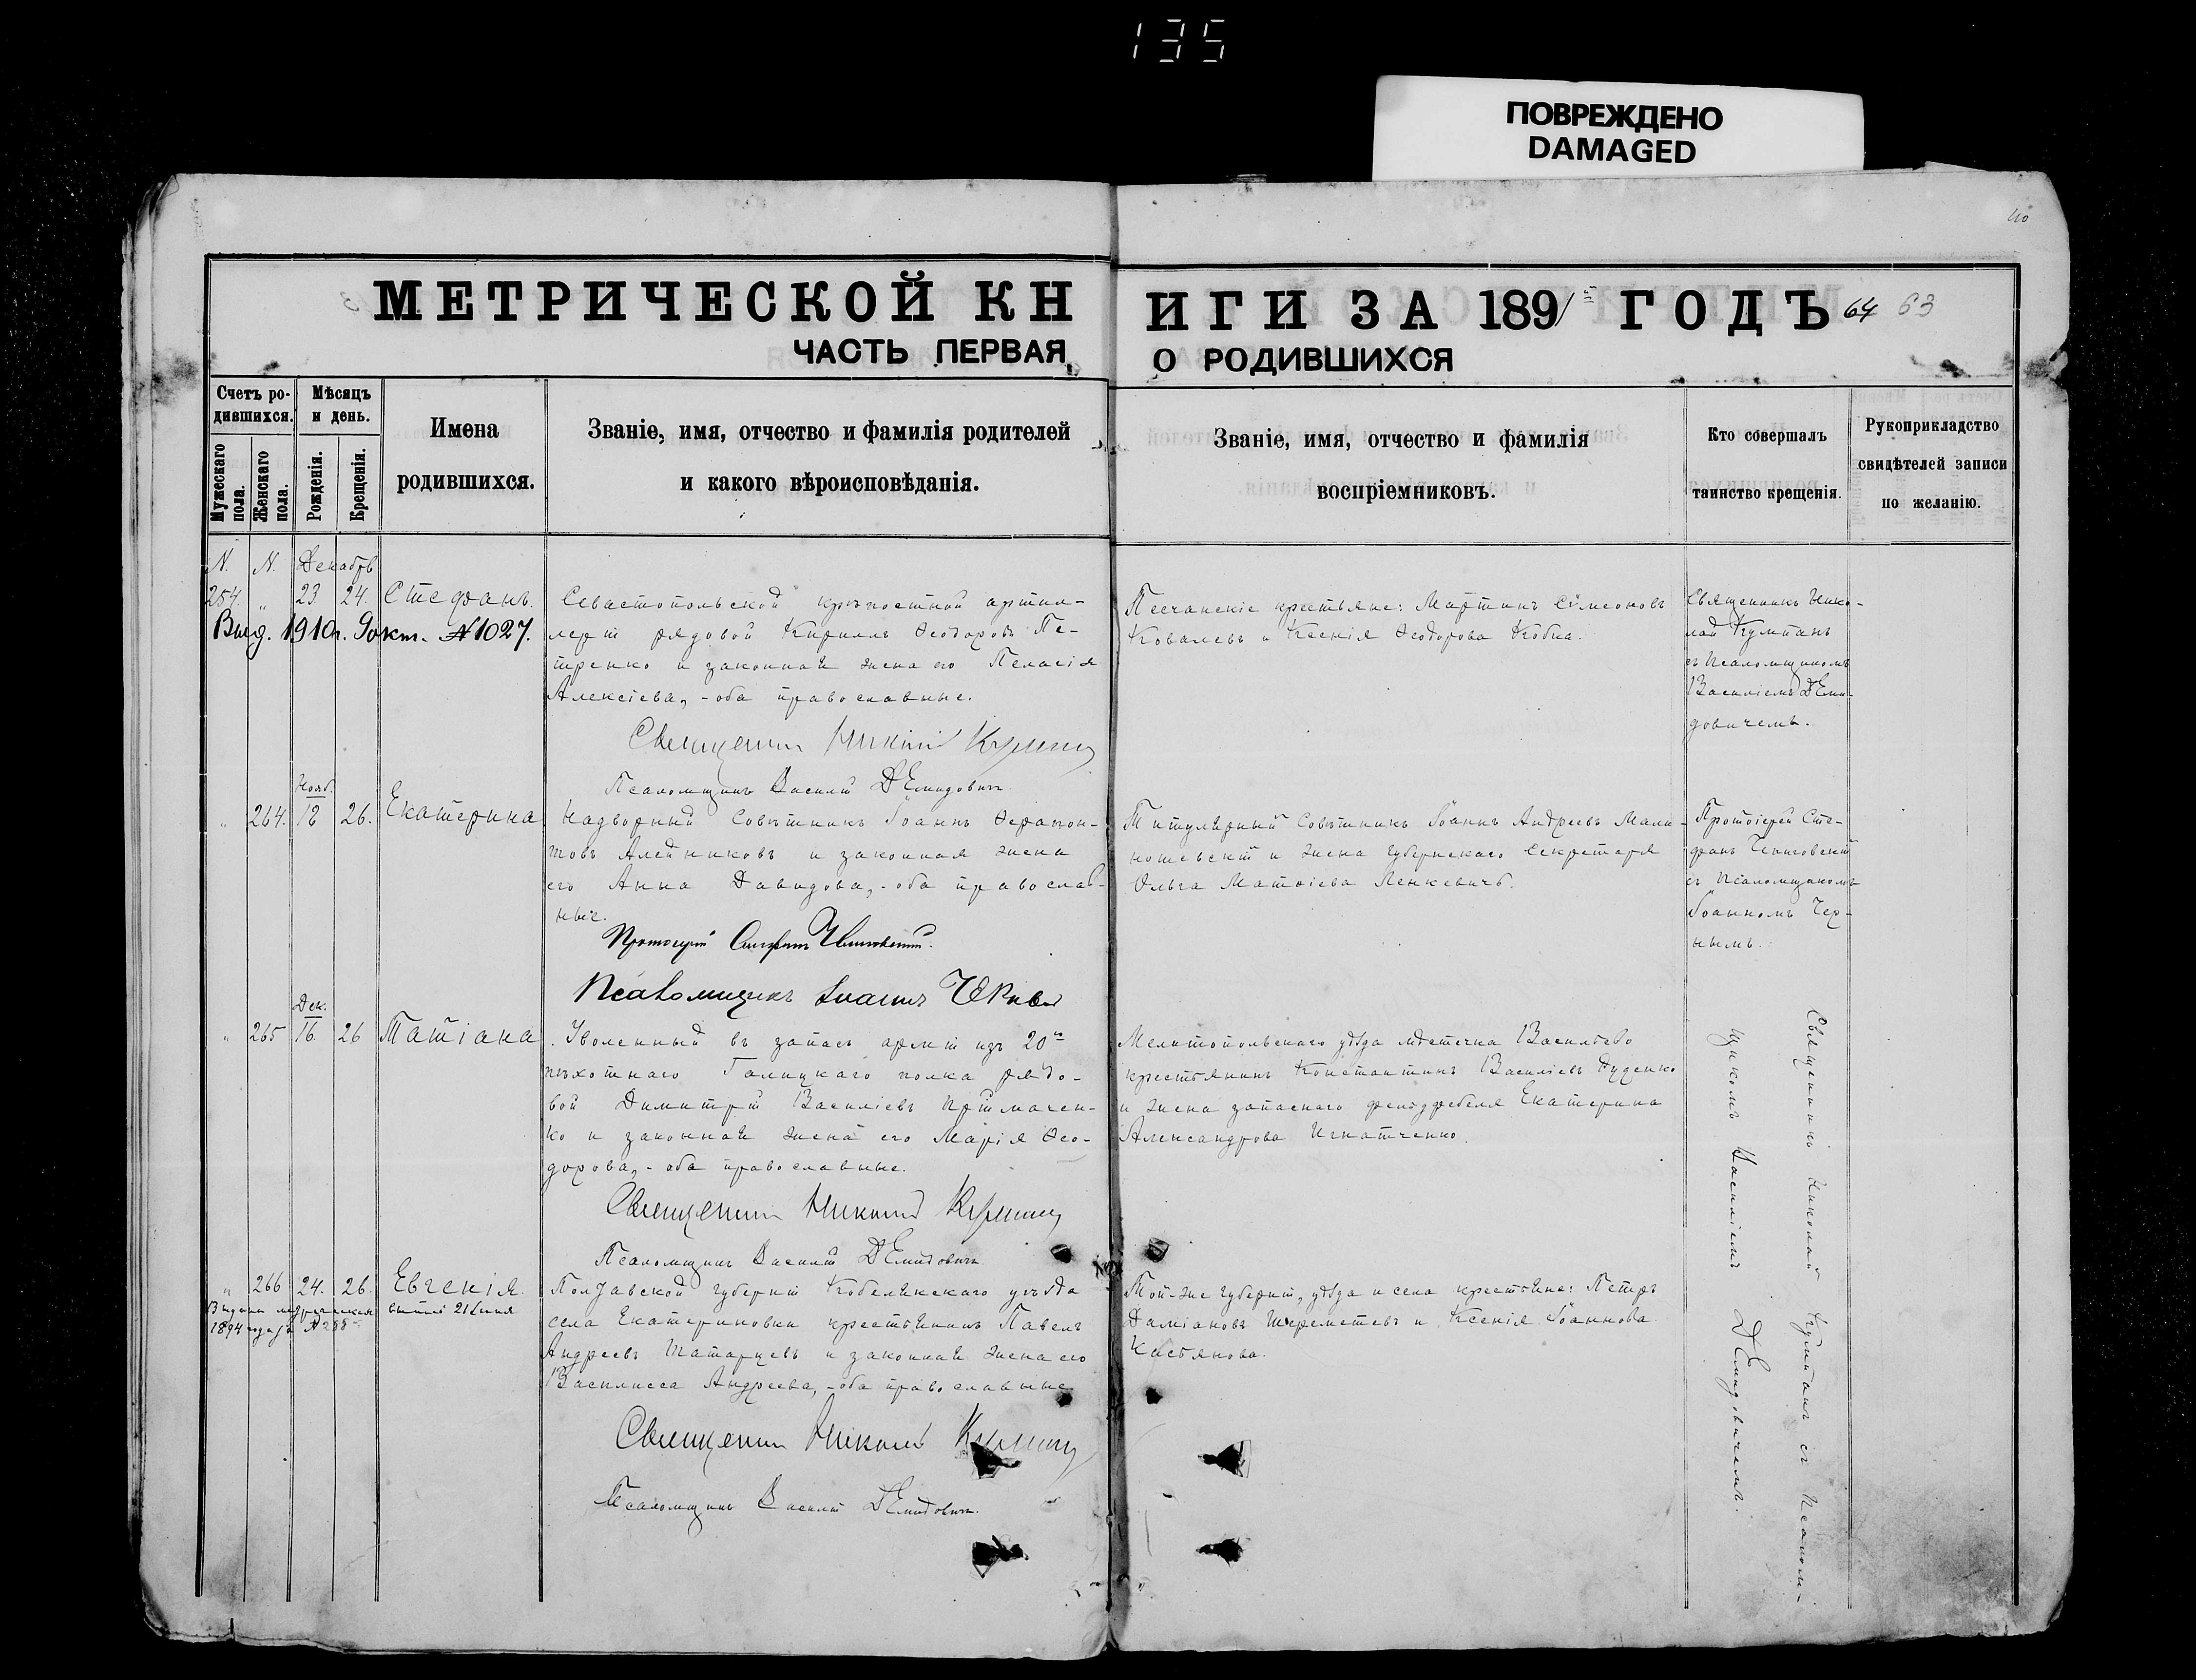 135
ПОВРЕЖДЕНО
DAMAGED
МЕТРИЧЕСКОЙ КН
ИГИ ЗА 1891 ГОДЪ 64 63
ЧАСТЬ ПЕРВАЯ
О РОДИВШИХСЯ
Счетъ ро-
дившихся.
Мужескаго пола.
Женскаго пола.
Мѣсяцъ
и день.
Рожденія.
Крещенія.
Имена
родившихся.
Званіе, имя, отчество и фамилія родителей
и какого вѣроисповѣданія.
Званіе, имя, отчество и фамилія
воспріемниковъ.
Кто совершалъ
таинство крещенія.
Рукоприкладство
свидѣтелей записи
по желанію.
N. N. Декабрь
254. " 23 24. Стефанъ.
Выд. 1910 г. 9 окт. № 1027.
Севастопольской крѣпостной артил-
леріи рядовой Кириллъ Ѳеодоровъ Пе-
тренко и законная жена его Пелагія
Алексіева, - оба православные.
Священникъ Николай
Псаломщикъ Василій Демидовичъ
Песчанскіе крестьяне: Мартинъ Сѵмеоновъ
Ковалевъ и Ксенія Ѳеодорова Кобка.
Священникъ Нико-
лай Кумпанъ
съ Псаломщикомъ
Василіемъ Деми-
довичемъ.
Нояб.
" 264. 18 26. Екатерина
Надворный Совѣтникъ Іоаннъ Ѳерапон-
товъ Алейниковъ и законная жена
его Анна Давидова, - оба православ-
ные.
Протоіерей Стефанъ Чениговскій.
Псаломщикъ Іоаннъ Черный
Титулярный Совѣтникъ Іоаннъ Андреевъ Мали-
ношевскій и жена Губернскаго Секретаря
Ольга Матѳіева Ленкевичъ.
Протоіерей Сте-
фанъ Чениговскій
съ Псаломщикомъ
Іоанномъ Чер-
нымъ.
Дек.
" 265 16 26 Татіана
Уволенный въ запасъ арміи изъ 20го
пѣхотнаго Галицкаго полка рядо-
вой Димитрій Василіевъ Приймачен-
ко и законная жена его Марія Ѳео-
дорова, - оба православные.
Священникъ Николай
Псаломщикъ Василій Демидовичъ
Мелитопольскаго уѣзда мѣстечка Васильево
крестьянинъ Константинъ Василіевъ Дуденко
и жена запаснаго фельдфебеля Екатерина
Александрова Игнатченко.
Священникъ Николай Кумпанъ съ Псалом-
щикомъ Василіемъ Демидовичемъ.
" 266 24. 26. Евгенія.
Выдана метрическая выпись 21 Іюня
1894 года за № 288
Полтавской губерніи Кобелякскаго уѣзда
села Екатериновки крестьянинъ Павелъ
Андреевъ Татарцевъ и законная жена его
Василисса Андреева, - оба православные
Священникъ Николай
Псаломщикъ Василій Демидовичъ.
Той-же губерніи, уѣзда и села крестьяне: Петръ
Даміановъ Шереметевъ и Ксенія Іоаннова
Касьянова.